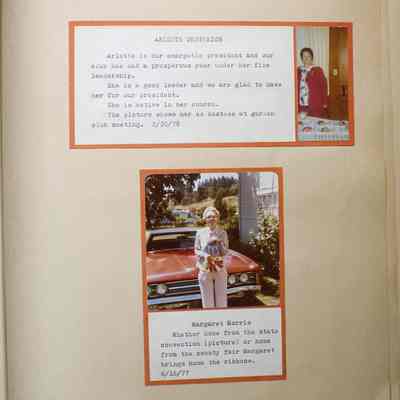 Arlotte is our energetic president and our
club has had a prosperous year under her fine
leadership.
She is a good leader and we are glad to have
her for our president.
She is active in her church.
The picture shows her as hostess at garden
club meeting. 2/20/78
Margaret Morris
Whether home from the state
convention (picture) or home
from the county fair Margaret
brings home the ribbons.
6/15/77